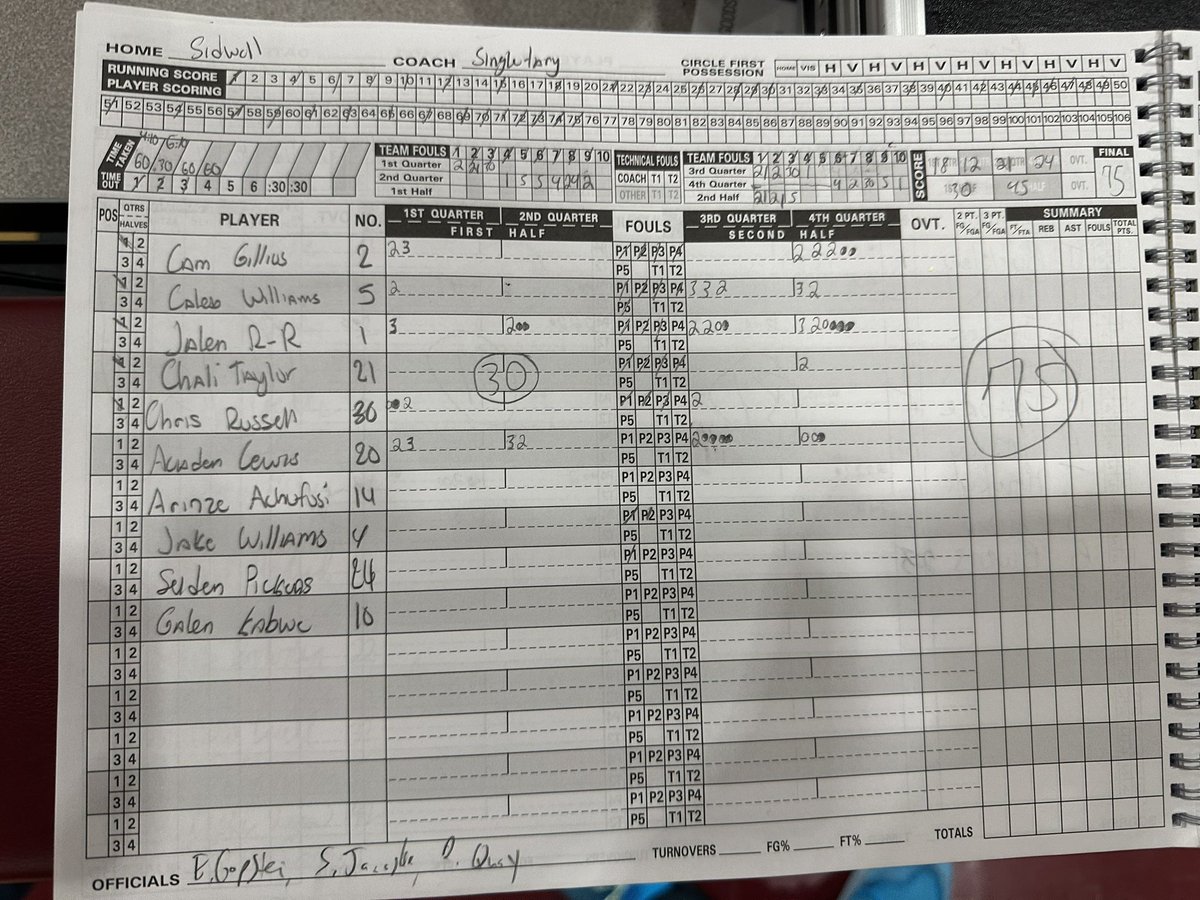 HOME Sidwell COACH Singletary CIRCLE FIRST POSSESSION HOME VIS H V H V H V H V H V H V H V H V
RUNNING SCORE 1 2 3 4 5 6 7 8 9 10 11 12 13 14 15 16 17 18 19 20 21 22 23 24 25 26 27 28 29 30 31 32 33 34 35 36 37 38 39 40 41 42 43 44 45 46 47 48 49 50
PLAYER SCORING
51 52 53 54 55 56 57 58 59 60 61 62 63 64 65 66 67 68 69 70 71 72 73 74 75 76 77 78 79 80 81 82 83 84 85 86 87 88 89 90 91 92 93 94 95 96 97 98 99 100 101 102 103 104 105 106
TIME TAKEN 60 30 60 60
TIME OUT 1 2 3 4 5 6 :30 :30
TEAM FOULS 1 2 3 4 5 6 7 8 9 10
1st Quarter
2nd Quarter
1st Half
TECHNICAL FOULS
COACH T1 T2
OTHER T1 T2
TEAM FOULS 1 2 3 4 5 6 7 8 9 10
3rd Quarter
4th Quarter
2nd Half
SCORE 18 12 21 24 OVT. FINAL
30 45 OVT. 75
POS QTRS HALVES PLAYER NO. 1ST QUARTER 2ND QUARTER FOULS 3RD QUARTER 4TH QUARTER OVT. 2 PT. FG/FGA 3 PT. FG/FGA SUMMARY
FIRST HALF SECOND HALF FT/FTA REB AST FOULS TOTAL PTS.
1 2 23 P1 P2 P3 P4 222
3 4 Cam Gillius 2 P5 T1 T2
1 2 2 P1 P2 P3 P4 332 32
3 4 Caleb Williams 5 P5 T1 T2
1 2 3 2 P1 P2 P3 P4 220 320
3 4 Jalen R-R 1 P5 T1 T2
1 2 P1 P2 P3 P4 2
3 4 Chali Taylor 21 30 P5 T1 T2 75
1 2 2 P1 P2 P3 P4 2
3 4 Chris Russell 30 P5 T1 T2
1 2 23 32 P1 P2 P3 P4 2
3 4 Lewis 20 P5 T1 T2
1 2 P1 P2 P3 P4
3 4 Arinze Achufusi 14 P5 T1 T2
1 2 P1 P2 P3 P4
3 4 Jake Williams 4 P5 T1 T2
1 2 P1 P2 P3 P4
3 4 P5 T1 T2
1 2 P1 P2 P3 P4
3 4 Galen 10 P5 T1 T2
1 2 P1 P2 P3 P4
3 4 P5 T1 T2
1 2 P1 P2 P3 P4
3 4 P5 T1 T2
1 2 P1 P2 P3 P4
3 4 P5 T1 T2
1 2 P1 P2 P3 P4
3 4 P5 T1 T2
1 2 P1 P2 P3 P4
3 4 P5 T1 T2
OFFICIALS TURNOVERS FG% FT% TOTALS